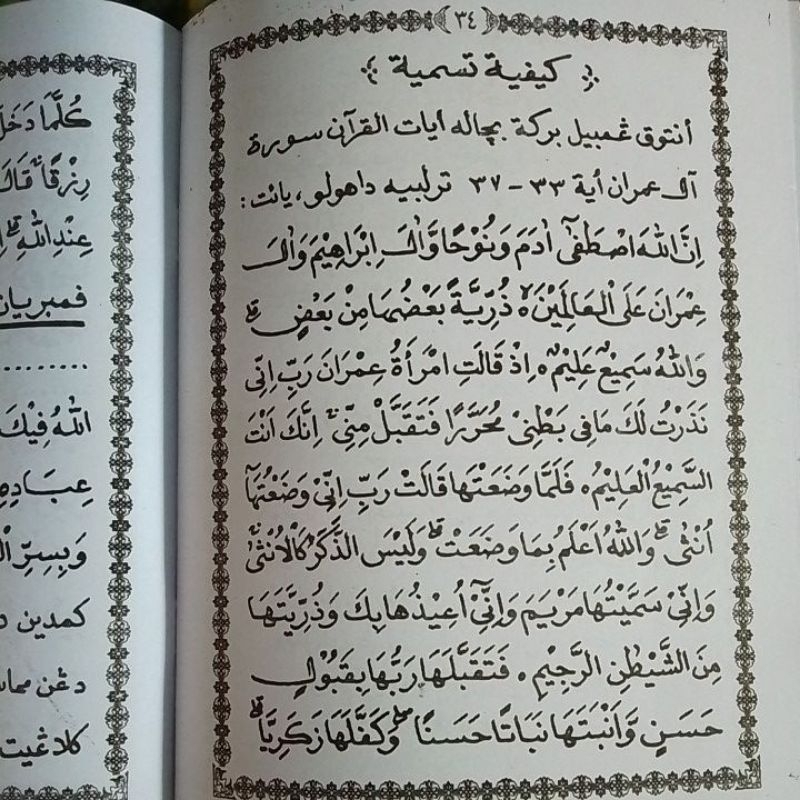 ٣٤
كيفية تسمية
أنتوق ڠمبيل بركة بچاله أيات القرآن سورة
آل عمران أية ٣٣ - ٣٧ ترلبيه داهولو، يائت:
اِنَّ اللّٰهَ اصْطَفٰىٓ اٰدَمَ وَنُوْحًا وَّاٰلَ اِبْرٰهِيْمَ وَاٰلَ
عِمْرَانَ عَلَى الْعَالَمِيْنَۙ ذُرِّيَّةً بَعْضُهَا مِنْ بَعْضٍۗ
وَاللّٰهُ سَمِيْعٌ عَلِيْمٌۚ اِذْ قَالَتِ امْرَاَةُ عِمْرَانَ رَبِّ اِنِّى
نَذَرْتُ لَكَ مَا فِى بَطْنِىْ مُحَرَّرًا فَتَقَبَّلْ مِنِّىْۚ اِنَّكَ اَنْتَ
السَّمِيْعُ الْعَلِيْمُ۞ فَلَمَّا وَضَعَتْهَا قَالَتْ رَبِّ اِنِّىْ وَضَعْتُهَآ
اُنْثٰىۗ وَاللّٰهُ اَعْلَمُ بِمَا وَضَعَتْۗ وَلَيْسَ الذَّكَرُ كَالْاُنْثٰىۚ
وَاِنِّىْ سَمَّيْتُهَا مَرْيَمَ وَاِنِّىْٓ اُعِيْذُهَا بِكَ وَذُرِّيَّتَهَا
مِنَ الشَّيْطٰنِ الرَّجِيْمِ۞ فَتَقَبَّلَهَا رَبُّهَا بِقَبُوْلٍ
حَسَنٍ وَّاَنْبَتَهَا نَبَاتًا حَسَنًاۖ وَّكَفَّلَهَا زَكَرِيَّاۗ
كُلَّمَا دَخَلَ
رِزْقًاۚ قَالَ
عِنْدِ اللّٰهِۗ
فمبريان
............
اللّٰهُ فِيْكَ
عِبَادِهِ
وَبِسِرِّ
كمدين
دڠن
كلاڠيت